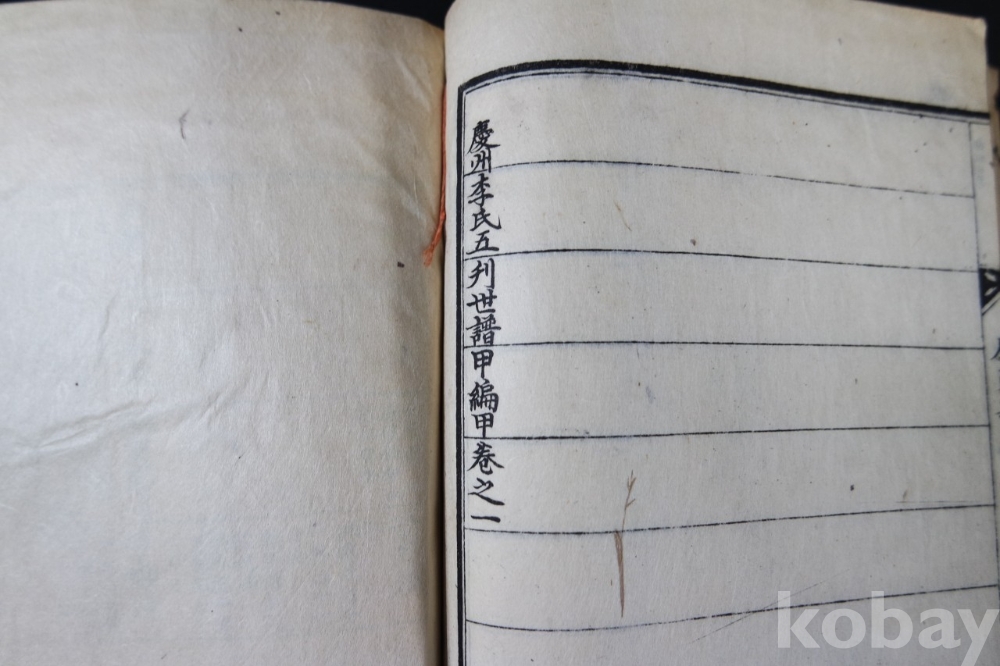 慶州李氏五刋世譜甲編甲卷之一
kobay